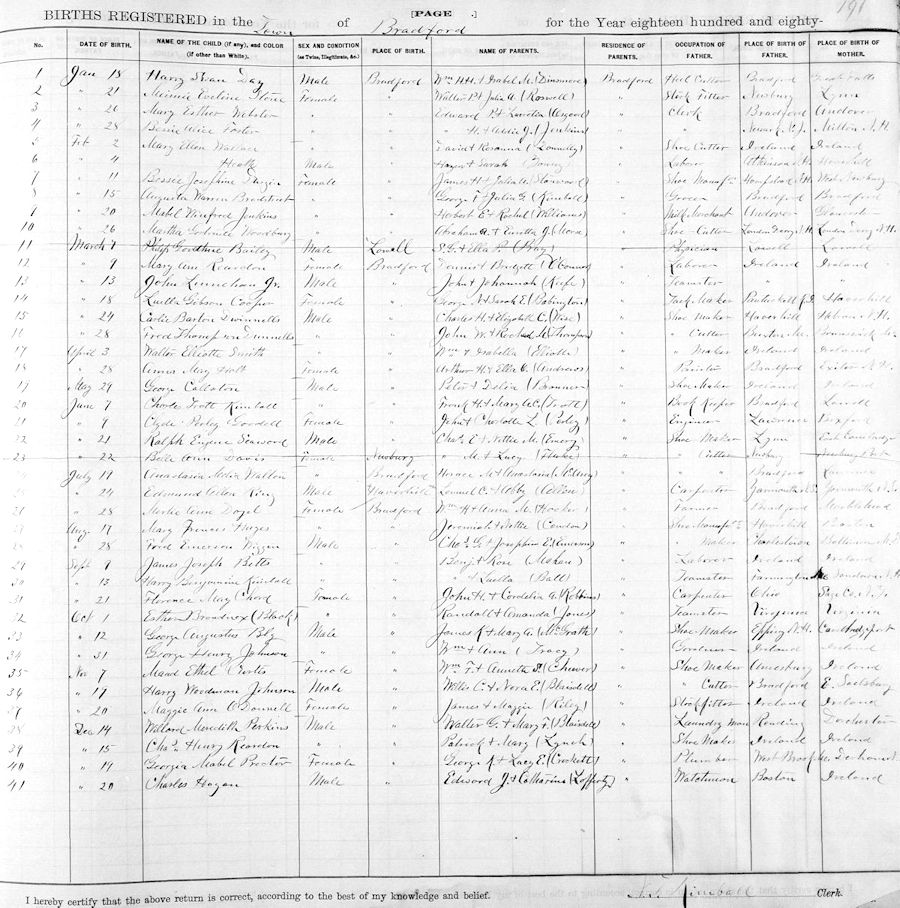 [PAGE .] 191
BIRTHS REGISTERED in the Town of Bradford for the Year eighteen hundred and eighty-
No. DATE OF BIRTH. NAME OF THE CHILD (if any), and COLOR (if other than White). SEX AND CONDITION (as Twins, Illegitimate, &c.) PLACE OF BIRTH. NAME OF PARENTS. RESIDENCE OF PARENTS. OCCUPATION OF FATHER. PLACE OF BIRTH OF FATHER. PLACE OF BIRTH OF MOTHER.
1 Jan 18 Harry Day Male Bradford Wm H.H. & Isabel M. (Dinsmore) Bradford Heel Cutter Bradford
2 " 21 Minnie Eveline Stone Female " Walter P. & Julia A. (Roswell) " Stock Fitter Newbury Lynn
3 " 26 Mary Esther Webster " " Edward P. & (Osgood) " Clerk Bradford Andover
4 " 28 Foster " " " H. & Addie J. (Jenkins) " " Newark N.J. Milton N.H.
5 Feb 2 Mary Ellen Wallace " " David & Rosanna (Connelly) " Shoe Cutter Ireland Ireland
6 " 4 Heath Male " Hazen & Sarah " Laborer Atkinson N.H. Haverhill
7 " 11 Bessie Josephine Female " James H. & " Shoe Manuf'r Hampstead N.H. West Newbury
8 " 15 Augusta Warren Bradstreet " " George F. & Julia G. (Kimball) " Grocer Bradford Bradford
9 " 20 Mabel Winford Jenkins " " Herbert E. & Rachel (Williams) " Milk Merchant Andover Gloucester
10 " 26 Martha Woodbury " " Abraham A. & J. (Morse) " Shoe Cutter Londonderry N.H. Londonderry N.H.
11 March 7 Philip Goodhue Bailey Male Lowell S.G. & Ella P. (Bray) " Physician Lowell
12 " 9 Mary Ann Reardon Female Bradford Dennis & Bridgett (O'Connor) " Laborer Ireland Ireland
13 " 13 John Linnehan Jr. Male " John & Johannah (Keefe) " Teamster " "
14 " 18 Luella Gibson Cooper Female " George N. & Sarah E. (Babington) " Tack Maker Haverhill
15 " 24 Carlie Barton Dwinnells Male " Charles H. & Elizabeth C. (Wise) " Shoe Maker Haverhill Hebron N.H.
" 28 Fred Thompson Dunnells " " John W. & Rachel M. (Thompson) " " Cutter
17 April 3 Walter Elliott Smith " " Wm & Isabella (Elliott) " " Maker Ireland Ireland
" 28 Anna May Holt Female " Arthur H. & Ella A. (Andrews) " Painter Bradford Exeter N.H.
19 May 29 George Callaton Male " Peter & Delia (Brennan) " Shoe Maker Ireland Ireland
20 June 7 Charles Trott Kimball " " Frank H. & Mary A.C. (Trott) " Book Keeper Bradford Lowell
21 " 9 Clyde Perley Goodell Female " John & Charlotte L. (Perley) " Engineer Lawrence Boxford
22 " 21 Ralph Eugene Seaward Male " Chas. E. & Nettie M. (Emery) " Shoe Maker Lynn East Cambridge
23 " 22 Belle Ann Davis Female Newbury " M. & Lucy (Fluke) " " Cutter Newbury Newburyport
July 14 Anastasia Walton " Bradford Horace M. & Anastasia " " " Bradford
" 24 Edmund King Male Haverhill Lemuel C. & Abby " Carpenter Yarmouth N.S. Yarmouth N.S.
" 28 Annie Female Bradford Wm H. & Anna M. (Hooker) " Farmer Bradford Marblehead
Aug 17 Mary Frances Hayes " " Jeremiah & Nettie (Condon) " Shoe Manuf'r Haverhill Boston
" 28 Ford Emerson Male " Chas. G. & Josephine E. (Emerson) " " Maker Charlestown
Sept 9 James Joseph Betts " " Benj. & Rose (Mehan) " Laborer Ireland Ireland
30 " 13 Harry Benjamin Kimball " " " & Luella (Ball) " Teamster Farmington Me
31 " 21 Florence May Chord Female " John H. & Cordelia A. (Robbins) " Carpenter Ohio
32 Oct 1 Esther Broadnox (Black) " " Randall & Amanda (Jones) " Teamster Virginia Virginia
33 " 12 George Augustus Bly Male " James K. & Mary A. (McGrath) " Shoe Maker Epping N.H.
34 " 31 George Henry Johnson " " Wm & Ann (Tracy) " Gardener Ireland Ireland
35 Nov 7 Maud Ethel Porter Female " Wm F. & Annetta S. (Chever) " Shoe Maker Amesbury Ireland
36 " 17 Harry Woodman Johnson Male " Willis C. & Nora E. (Blaisdell) " " Cutter Bradford E. Salisbury
37 " 20 Maggie Ann O'Donnell Female " James & Maggie (Riley) " Stock fitter Ireland Ireland
38 Dec 14 Willard Meredith Perkins Male " Walter G. & Mary F. (Blaisdell) " Laundry man Reading Dorchester
39 " 15 Chas. Henry Reardon " " Patrick & Mary (Lynch) " Shoe Maker Ireland Ireland
40 " 19 Georgia Mabel Proctor Female " George K. & Lucy E. (Crockett) " Plumber
41 " 20 Charles Hogan Male " Edward J. & Catharine (Lafferty) " Watchman Boston Ireland
I hereby certify that the above return is correct, according to the best of my knowledge and belief. Kimball Clerk.